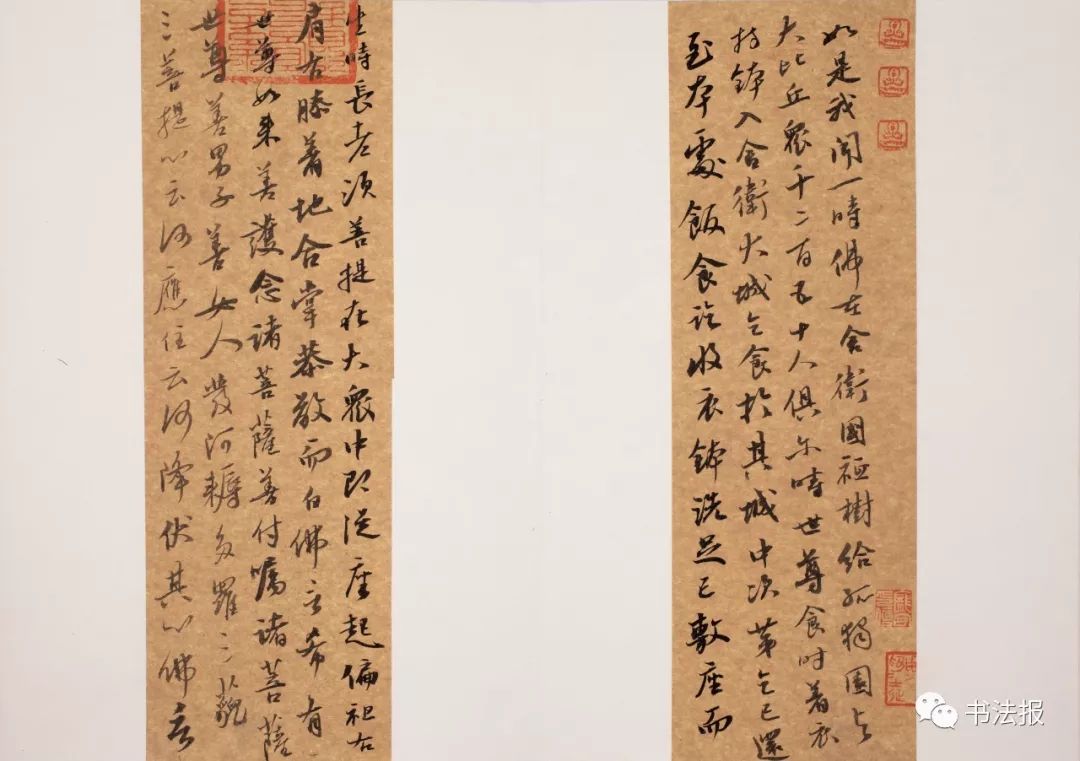 如是我聞一時佛在舍衛國祗樹給孤獨園与
大比丘眾千二百五十人俱尔時世尊食时著衣
持鉢入舍衛大城乞食於其城中次第乞已還
至本處飯食訖收衣鉢洗足已敷座而
坐時長老須菩提在大眾中即從座起偏袒右
肩右膝著地合掌恭敬而白佛言希有
世尊如来善護念諸菩薩善付嘱諸菩薩
世尊善男子善女人發阿耨多羅三藐
三菩提心云何應住云何降伏其心佛言
书法报